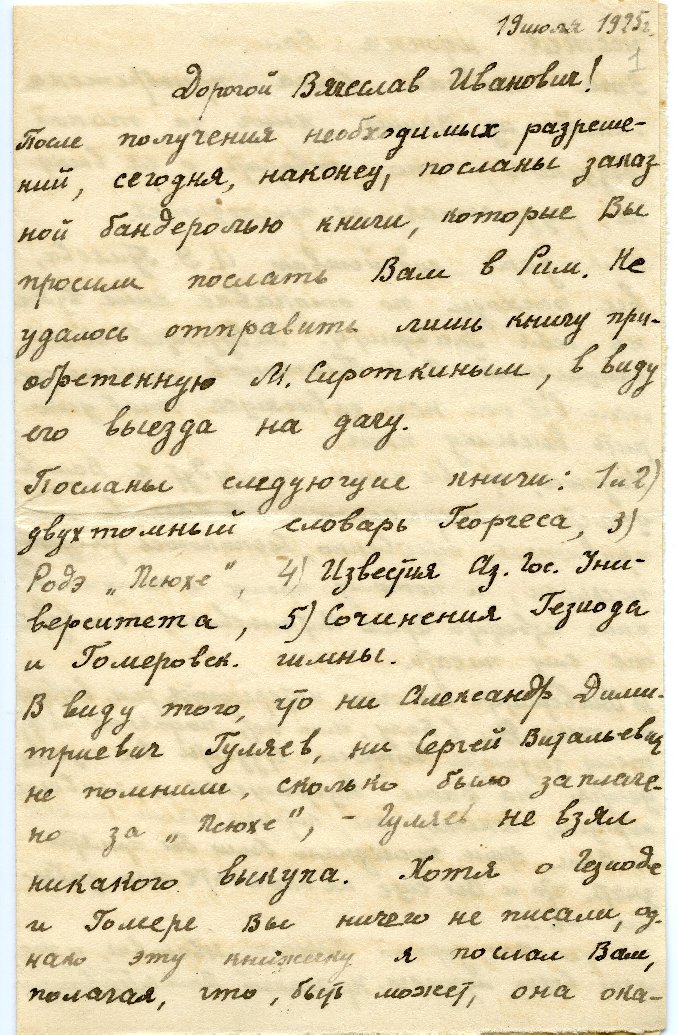 19 июля 1925 г.
1
Дорогой Вячеслав Иванович!
После получения необходимых разреше-
ний, сегодня, наконец, посланы заказ
ной бандеролью книги, которые Вы
просили послать Вам в Рим. Не
удалось отправить лишь книгу при-
обретенную М. Сироткиным, в виду
его выезда на дачу.
Посланы следующие книги: 1 и 2)
двухтомный словарь Георгеса, 3)
Родэ „Псюхе", 4) Известия Аз. Гос. Уни-
верситета, 5) Сочинения Гезиода
и Гомеровск. гимны.
В виду того, что ни Александр Дими-
триевич Гуляев, ни Сергей Витальевич
не помнили, сколько было заплаче-
но за „Псюхе", – Гуляев не взял
никакого выкупа. Хотя о Гезиоде
и Гомере Вы ничего не писали, од-
нако эту книжку я послал Вам,
полагая, что, быть может, она ока-